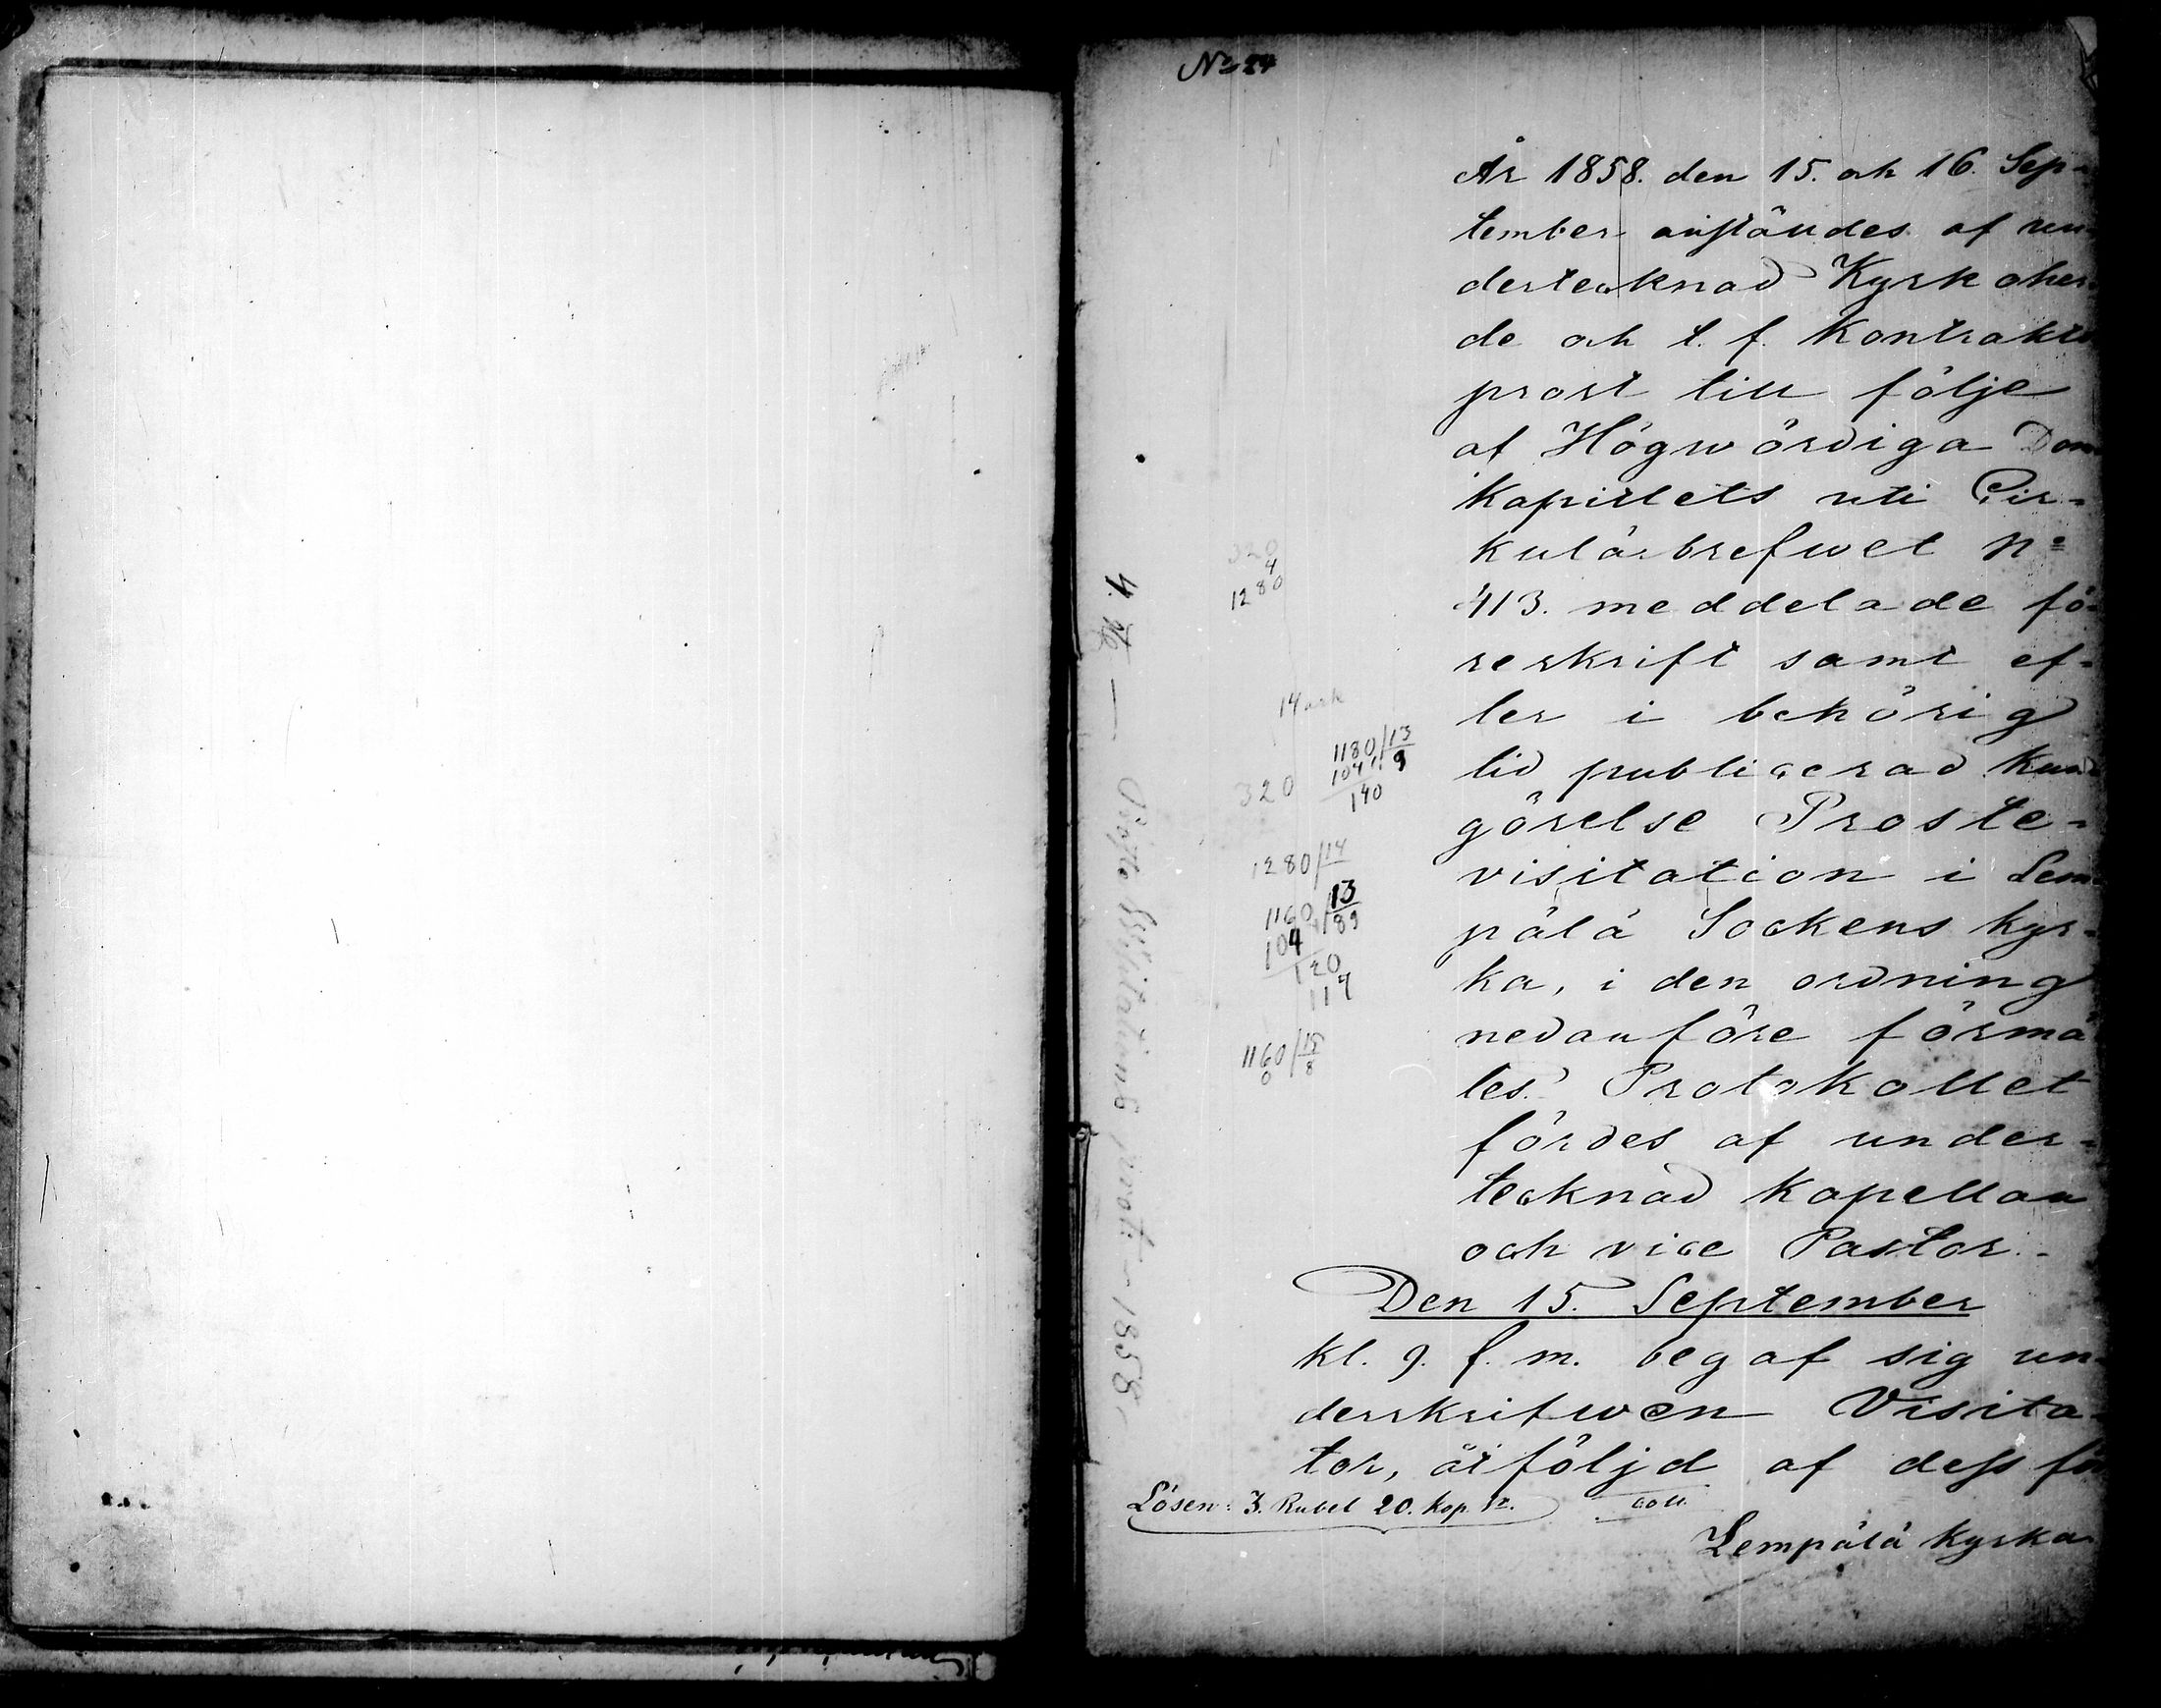 No 24
År 1858. den 15. och 16. Sep-
tember anställdes af un-
dertecknad Kyrkoher-
de och t. f. Kontrakts
prost till följe
af Högwördiga Dom
Kapitlets uti Cir-
kulärbrefwet No
413. meddelade fö-
reskrift samt ef-
ter i behörig
tid publicerad Kun-
görelse Proste-
visitation i Lem-
pälä Sockens kyr-
ka, i den ordning
nedanföre förmä
les. Protokollet
fördes af under-
tecknad Kapellan
och vice Pastor.-
Den 15. September
kl. 9. f. m. begaf sig un-
derskrifwen Visita-
tor, åtföljd af dess
Lösen: 3. Rubel 20. Kop. Sr. coll.
Lempälä kyrka
320
4
1280
14 ark
1180/13
104 9
140
320
1280/14
1160/13
104 89
120
117
1160/15
0 8
4. — Visitations prot. 1858.